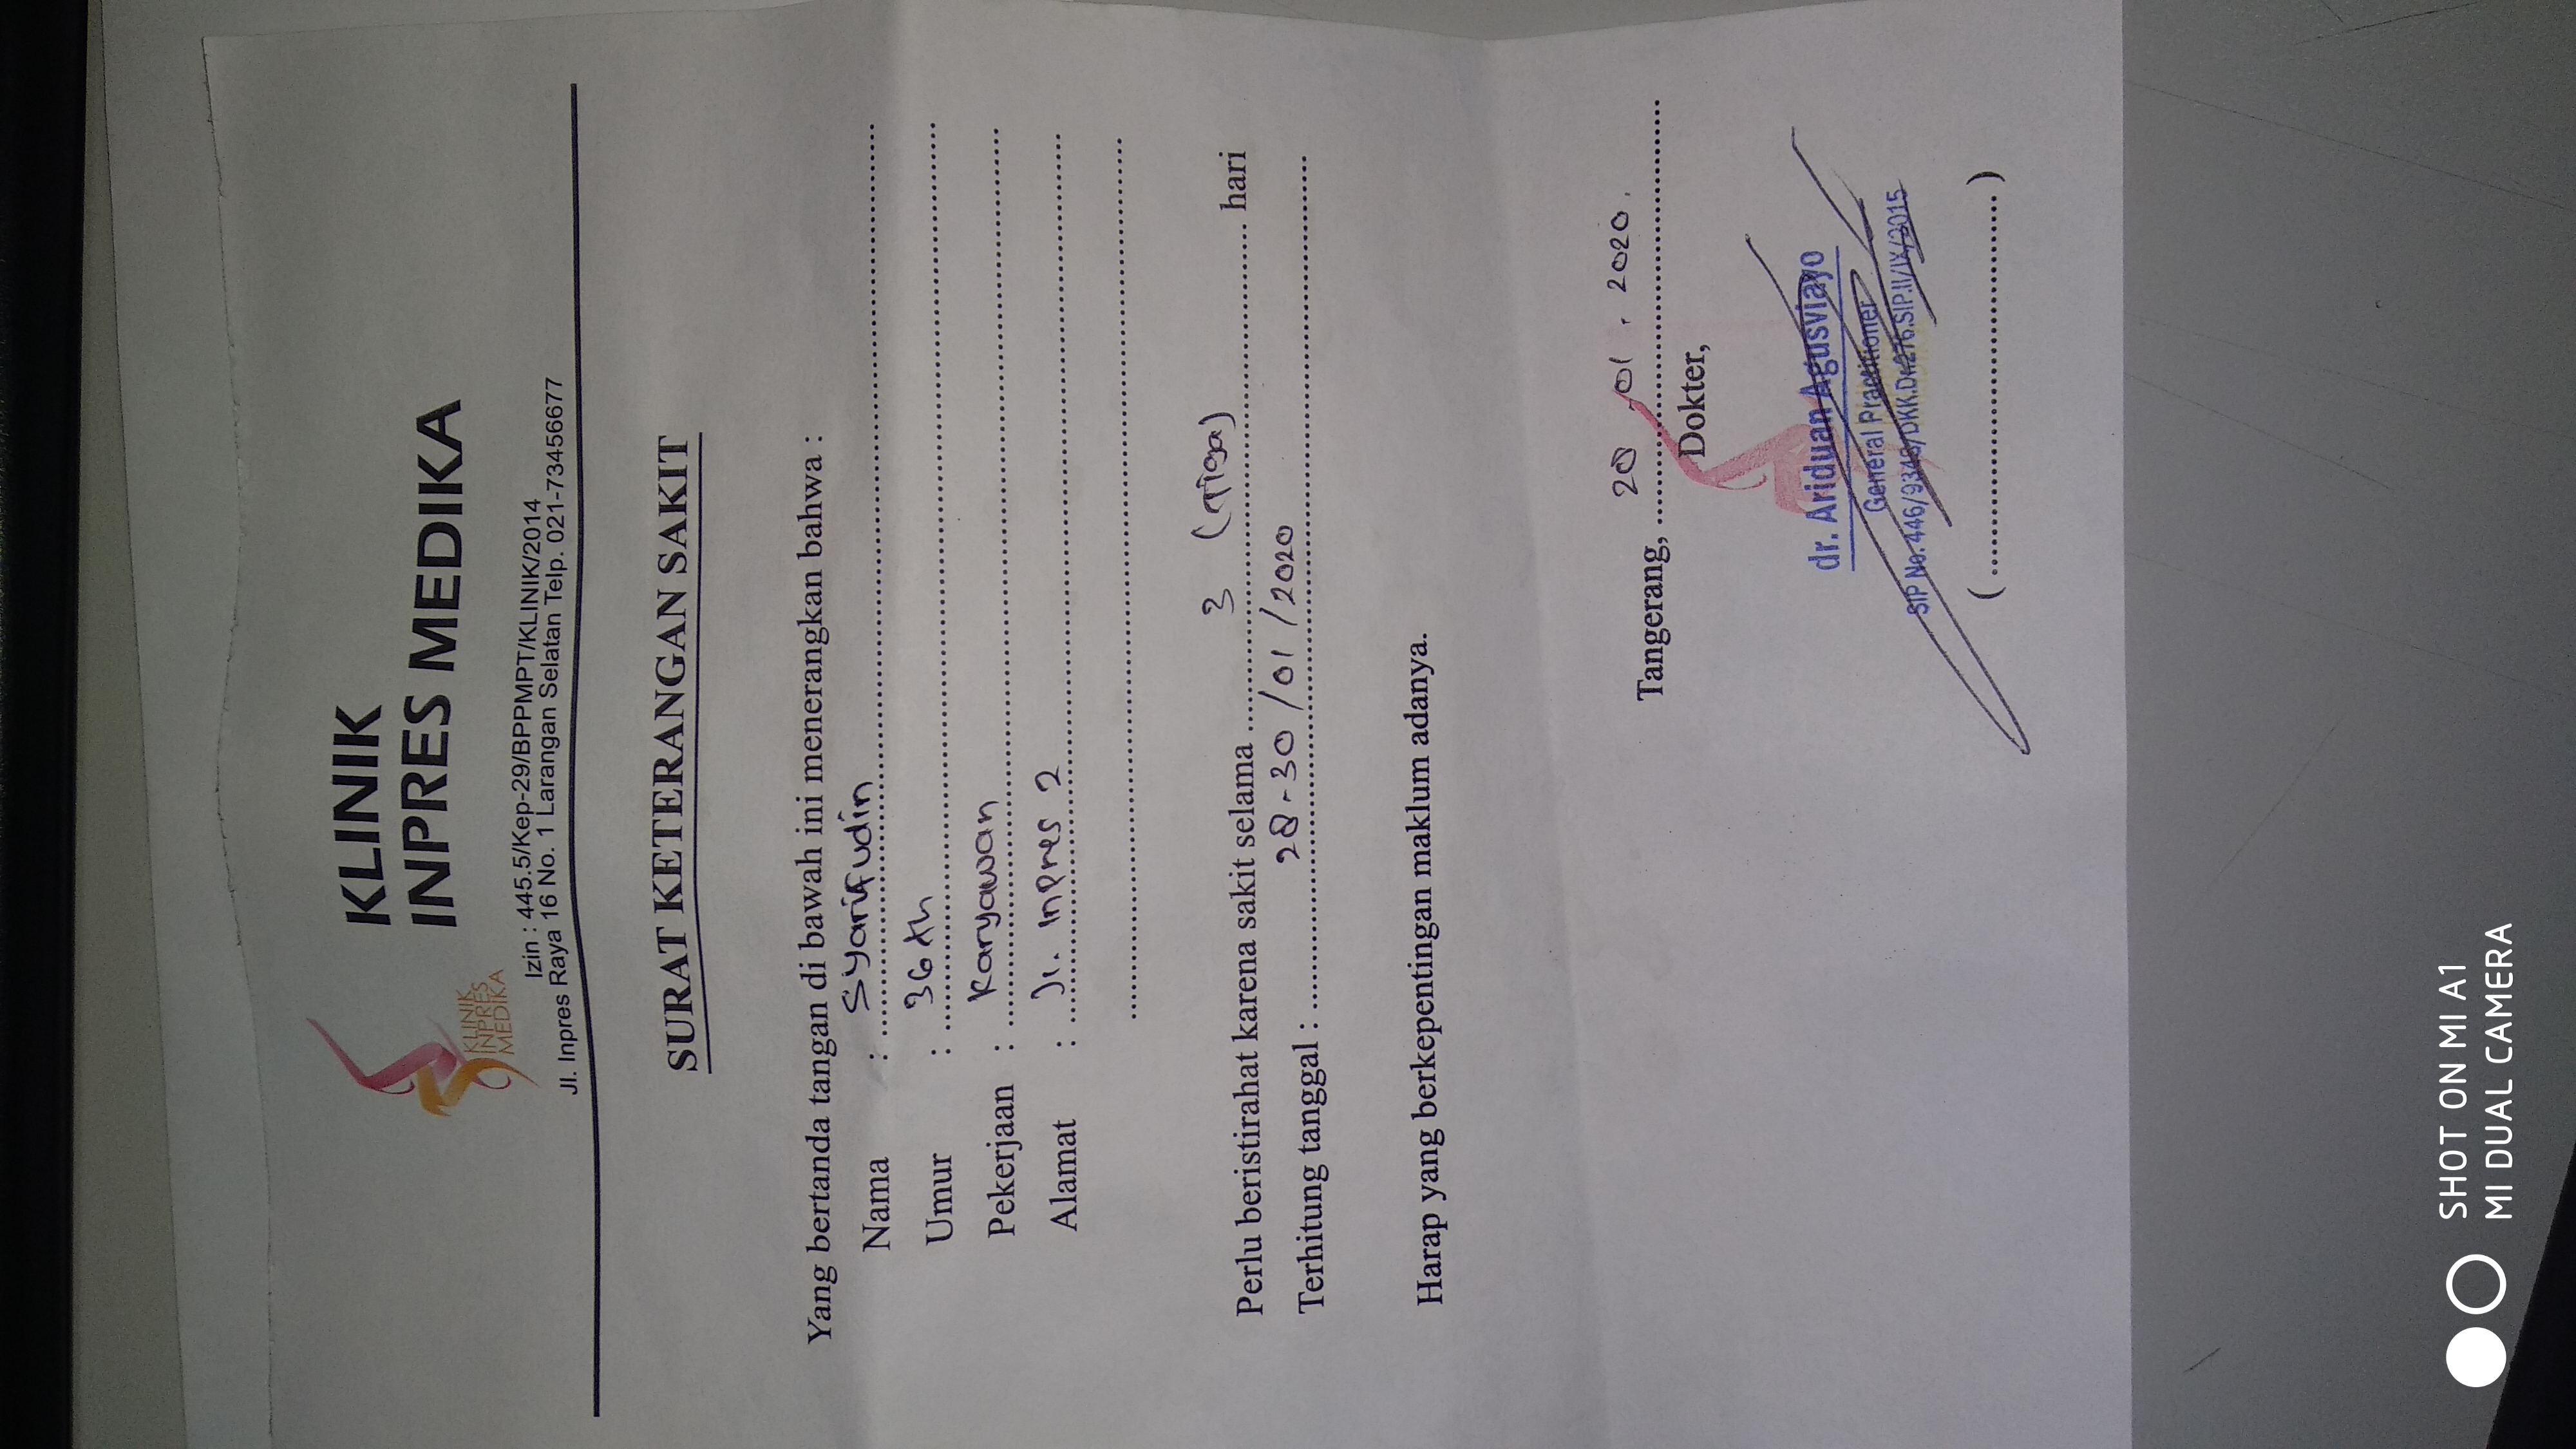 KLINIK
INPRES MEDIKA
KLINIK
INPRES
MEDIKA
Izin : 445.5/Kep-29/BPPMPT/KLINIK/2014
Jl. Inpres Raya 16 No. 1 Larangan Selatan Telp. 021-73456677
SURAT KETERANGAN SAKIT
Yang bertanda tangan di bawah ini menerangkan bahwa :
Nama : Syarifudin
Umur : 36 th
Pekerjaan : Karyawan
Alamat : Jl. Inpres 2
Perlu beristirahat karena sakit selama 3 (Tiga) hari
Terhitung tanggal : 28-30/01/2020
Harap yang berkepentingan maklum adanya.
Tangerang, 28 . 01 . 2020.
Dokter,
dr. Ariduan Agusviayo
General Practitioner
SIP No. 446/9348/DKK.Dr.276.SIP.II/IX/2015
(..........................................)
SHOT ON MI A1
MI DUAL CAMERA